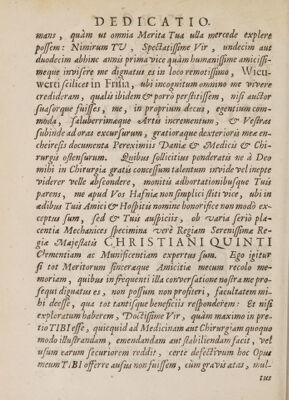 DEDICATIO.
mans, quàm ut omnia Merita Tua ulla mercede explere
possem: Nimirum TU, Spectatissime Vir, undecim aut
duodecim abhinc annis prima vice quàm humanissime amicissi-
meque invisere me dignatus es in loco remotissimo, Wieu-
werti scilicet in Frisia, ubi incognitum omnino me vivere
credideram, qualis ibidem & porrò perstitissem, nisi auctor
suasorque fuisses, me, in proprium decus, egentium com-
moda, saluberrimæque Artis incrementum, & Vestræ
subinde ad oras excursurum, gratioraque dexterioris meæ en-
cheiresis documenta Pereximiis Daniæ & Medicis & Chi-
rurgis ostensurum. Quibus sollicitius ponderatis ne à Deo
mihi in Chirurgia gratis concessum talentum invidè vel inepte
viderer velle abscondere, monitis adhortationibusque Tuis
parens, me apud Vos Hafniæ non simplici stiti vice, ubi in
ædibus Tuis Amici & Hospitii nomine honorifice non modò ex-
ceptus sum, sed & Tuis auspiciis, ob varia seriò pla-
centia Mechanices specimina verè Regiam Serenissimæ Re-
giæ Majestatis CHRISTIANI QUINTI
Clementiam ac Munificentiam expertus sum. Ego igitur
si tot Meritorum sinceræque Amicitiæ mecum recolo me-
moriam, quibus in frequenti illa conversatione nostra me pro-
sequi dignatus es, non possum non profiteri, facultatem mi-
hi deesse, qua tot tantisque beneficiis responderem: Et nisi
exploratum haberem, Doctissime Vir, quàm maximo in pre-
tio TIBI esse, quicquid ad Medicinam aut Chirurgiam quoquo
modo illustrandam, emendandam aut stabiliendam facit, vel
usum earum securiorem reddit, certe defectivum hoc Opus
meum TIBI offerre ausus non fuissem, cùm gravis ætas, mul-
tus